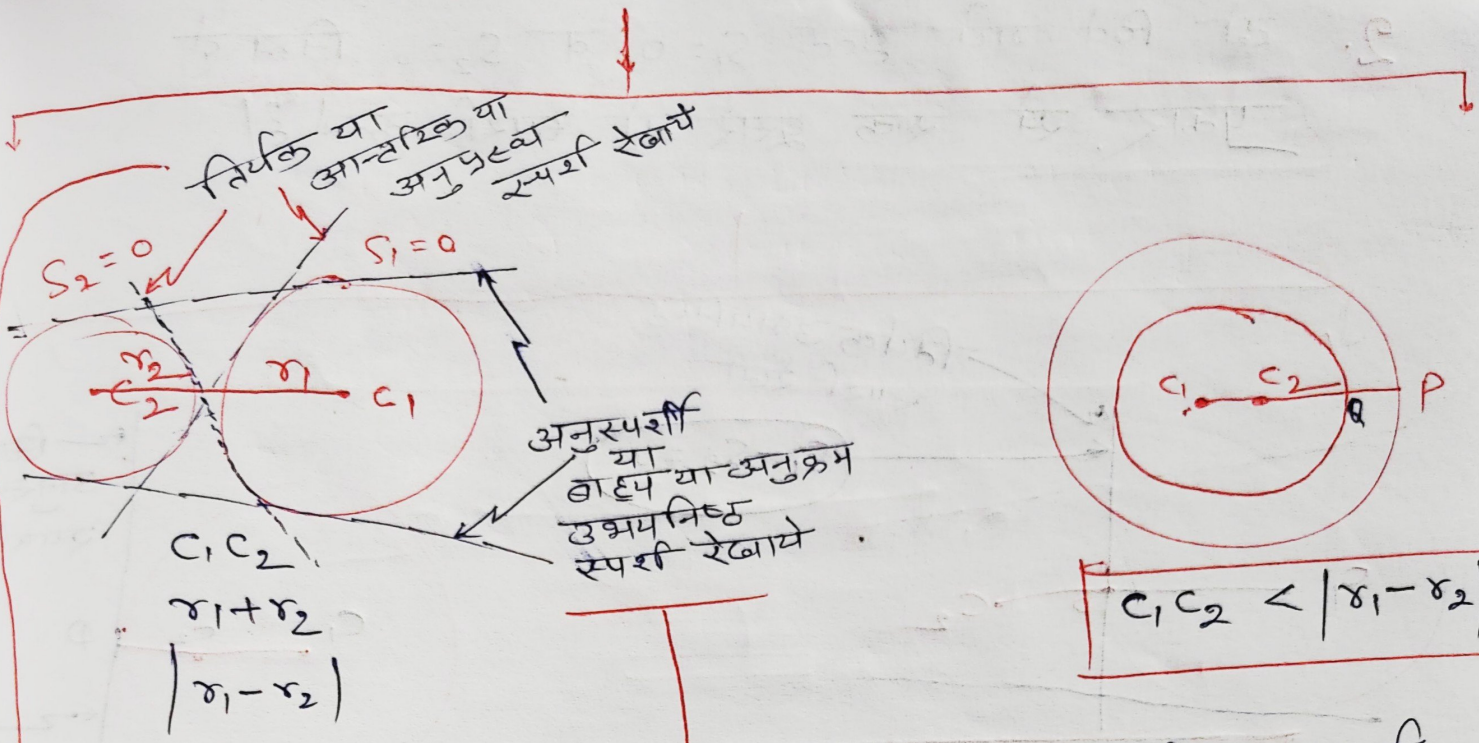 तिर्यक या
आन्तरिक या
अनुप्रस्थ
स्पर्श रेखाये
S₂ = 0
S₁ = 0
r₂
C₂
r₁
C₁
अनुस्पर्शी
या
बाह्य या अनुक्रम
उभयनिष्ठ
स्पर्श रेखाये
C₁ C₂
r₁ + r₂
|r₁ - r₂|
C₁
C₂
Q
P
C₁ C₂ < |r₁ - r₂